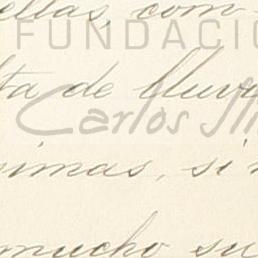 ellas, com
FUNDACIÓ
ta de lluvi
Carlos
imas, si
mucho su